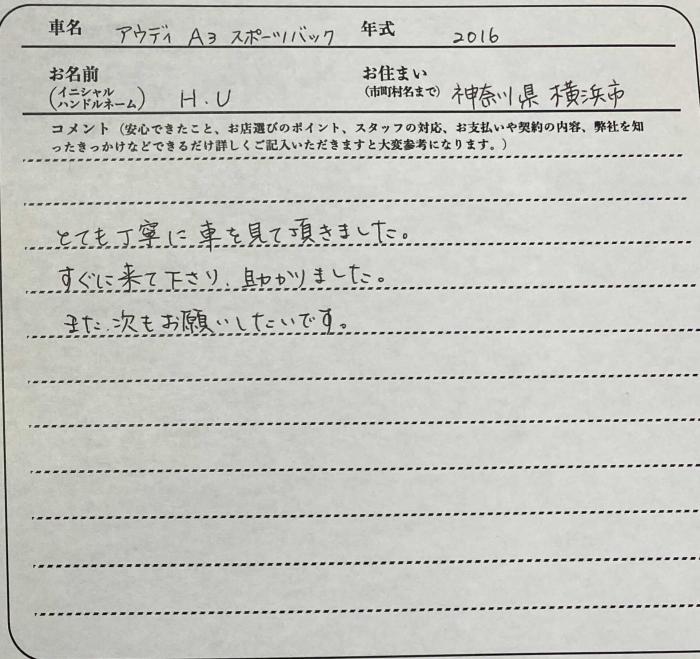 車名 アウディ A3 スポーツバック 年式 2016
お名前 お住まい
(イニシャル ハンドルネーム) H.U (市町村名まで) 神奈川県 横浜市
コメント（安心できたこと、お店選びのポイント、スタッフの対応、お支払いや契約の内容、弊社を知
ったきっかけなどできるだけ詳しくご記入いただきますと大変参考になります。）
とても丁寧に車を見て頂きました。
すぐに来て下さり、助かりました。
また、次もお願いしたいです。